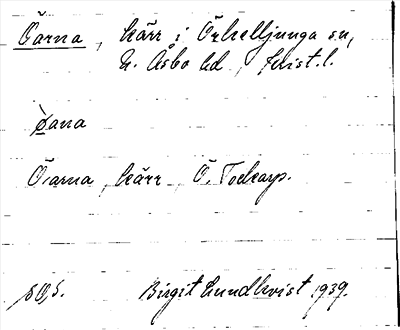 Öarna, kärr i Örkelljunga sn,
N. Åsbo hd, Krist. l.
òana
Öarna, kärr, Ö. Torkarp.
SOS. Birgit Lundkvist 1939.